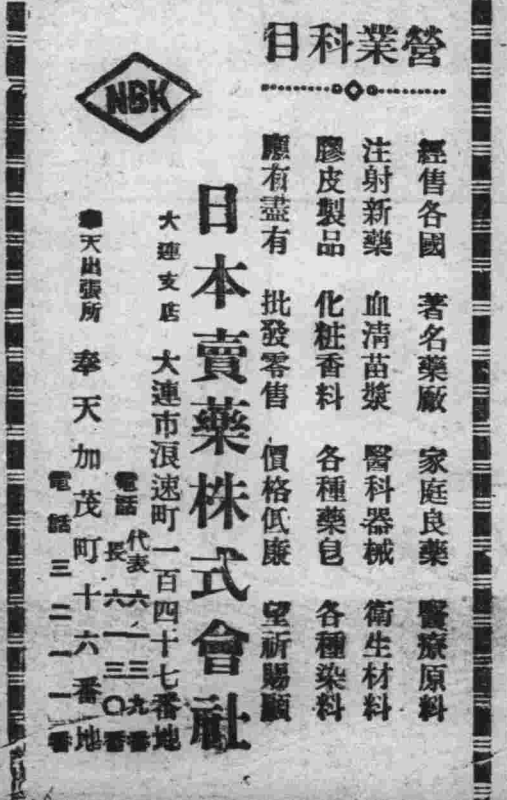 營業科目
經售各國 著名藥廠 家庭良藥 醫療原料
注射新藥 血清苗漿 醫科器械 衛生材料
膠皮製品 化粧香料 各種藥皂 各種染料
應有盡有 批發零售 價格低廉 望祈賜顧
NBK
日本賣藥株式會社
大連支店 大連市浪速町一百四十七番地
電話 代表 六一三九番
長 六一三〇番
奉天出張所 奉天加茂町十六番地
電話 三二一一番